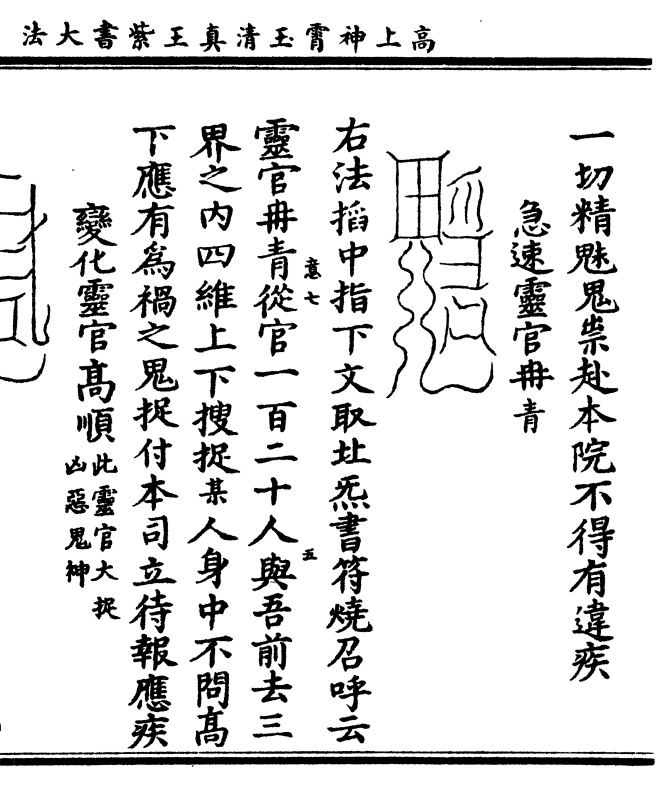 高上神霄玉清真王紫書大法
一切精魅鬼祟赴本院不得有違疾
急速靈官冉青
右法搯中指下文取北炁書符燒召呼云
靈官冉青從官一百二十人與吾前去三
意七
五
界之内四維上下搜捉某人身中不問髙
下應有為禍之鬼捉付本司立待報應疾
變化靈官髙順此靈官大捉
凶惡鬼神